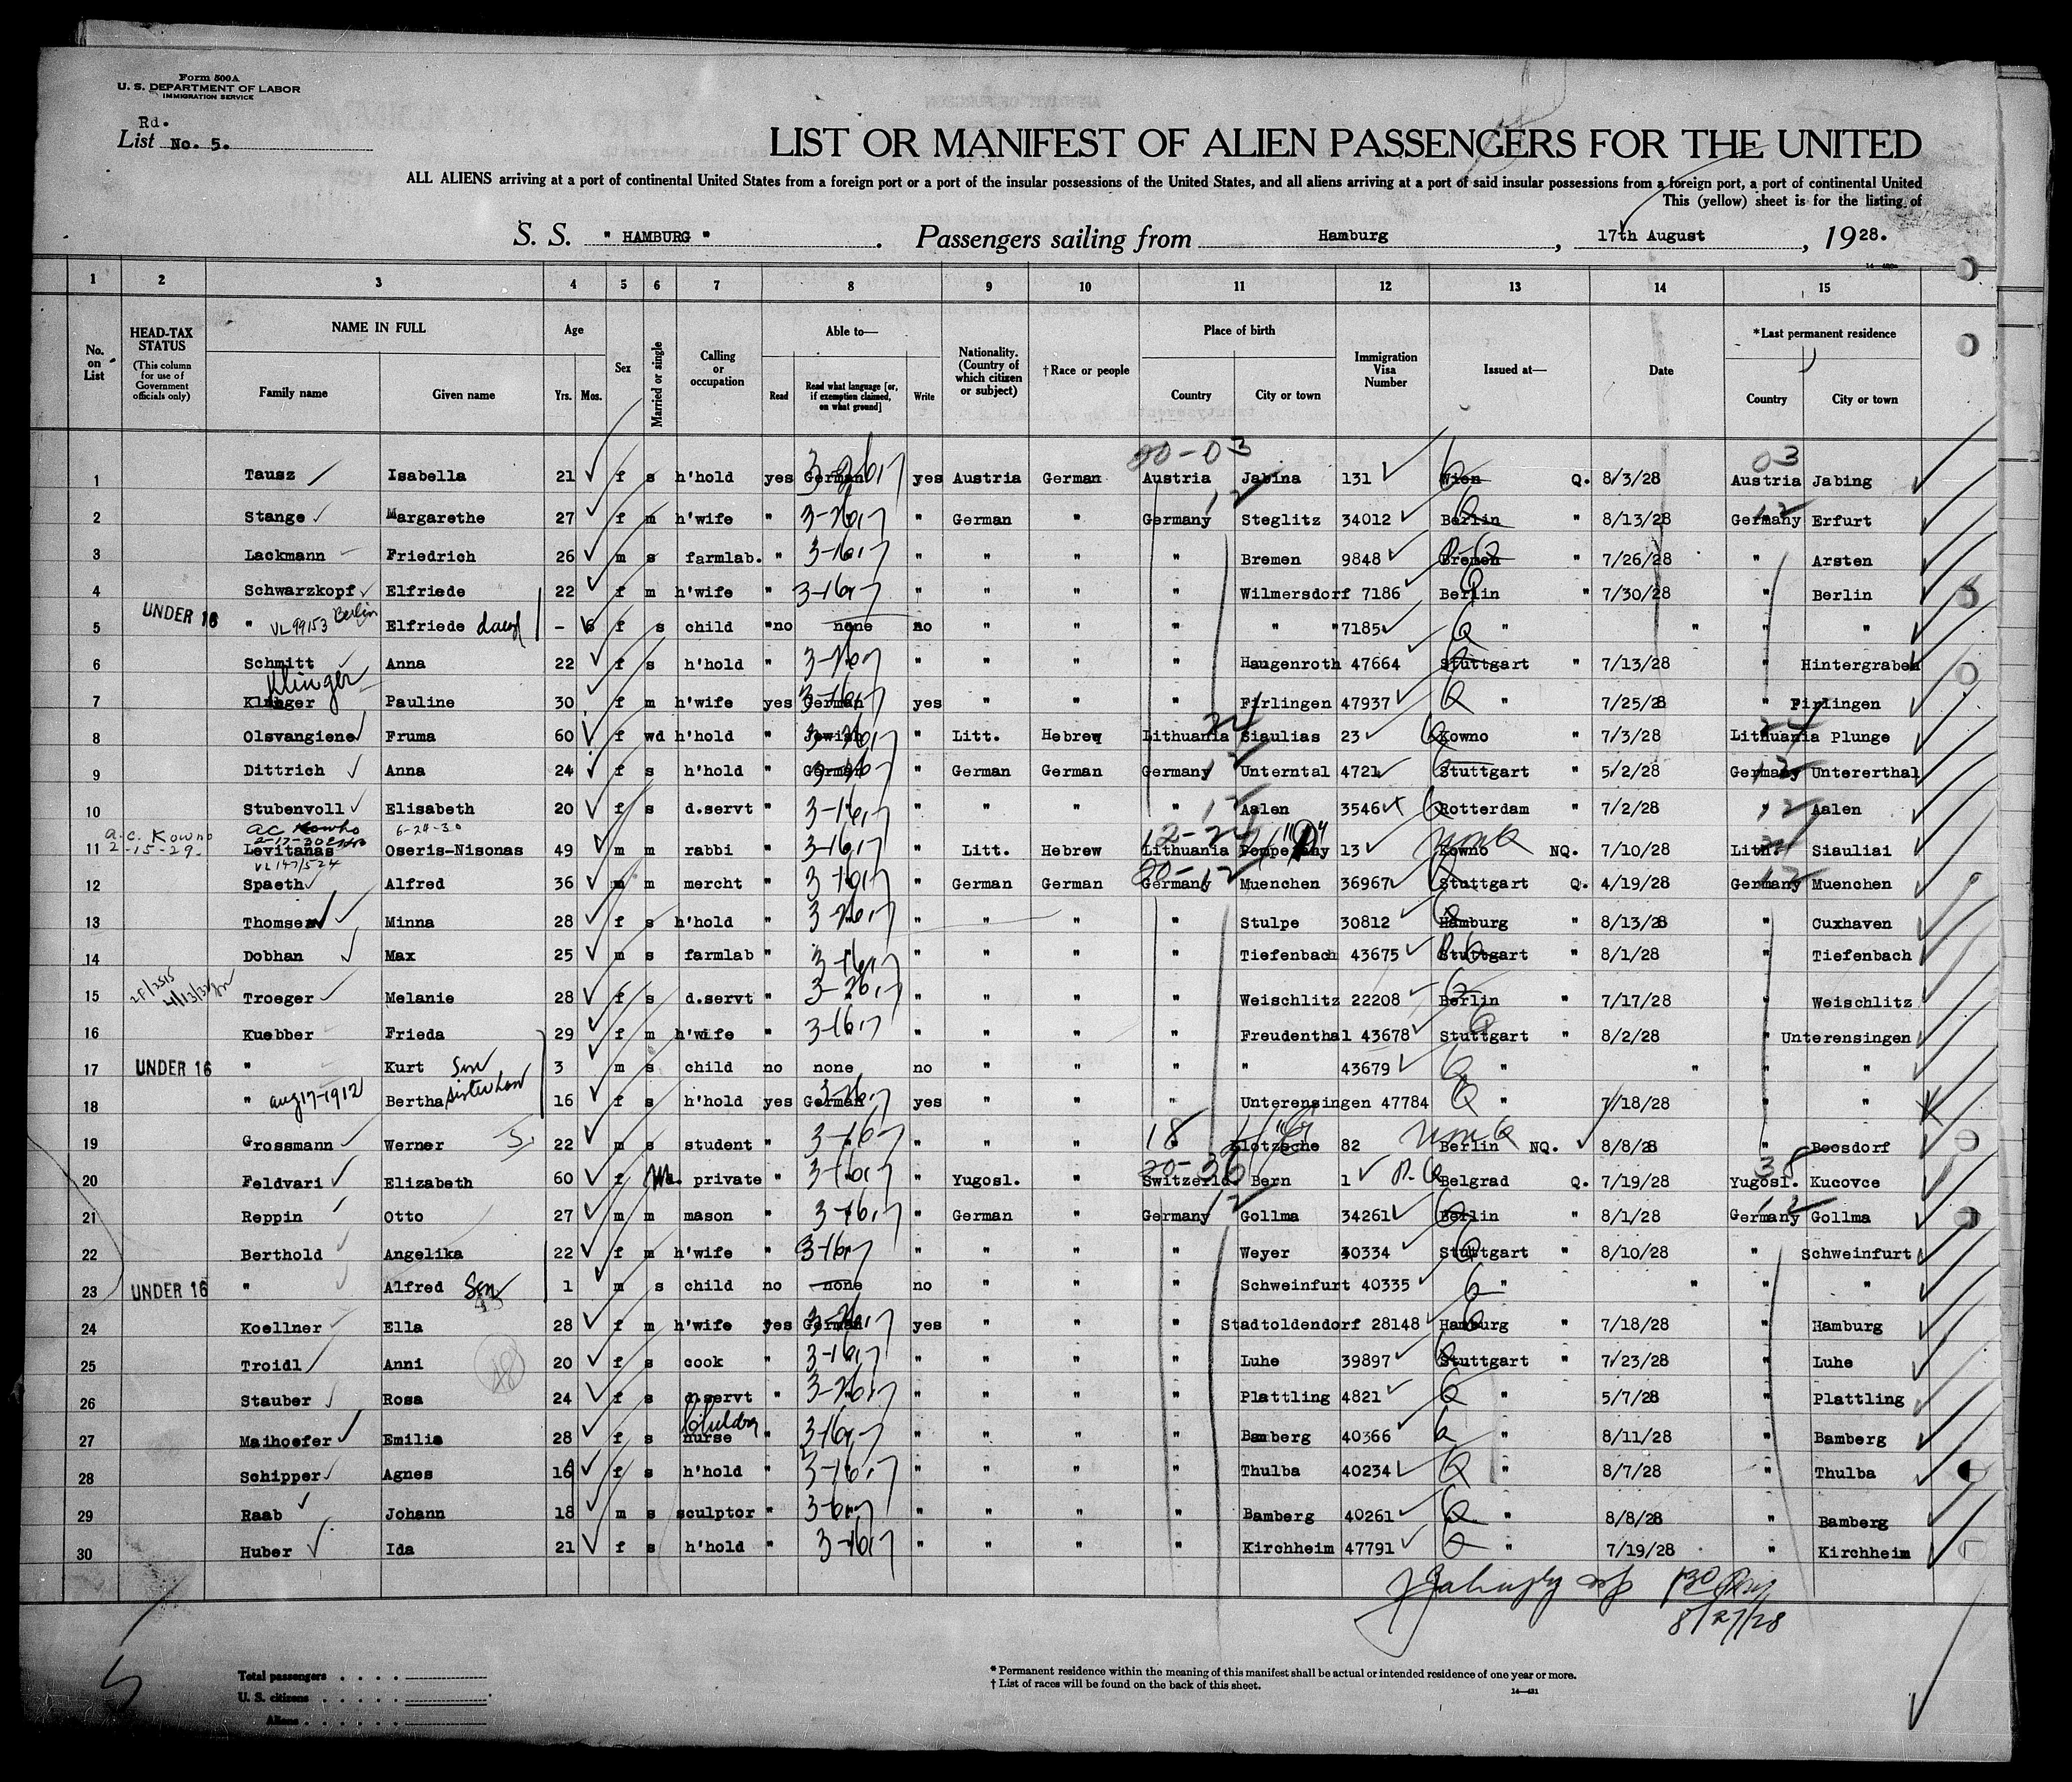 Form 500A
U. S. DEPARTMENT OF LABOR
IMMIGRATION SERVICE
Rd.
List No. 5.
LIST OR MANIFEST OF ALIEN PASSENGERS FOR THE UNITED
ALL ALIENS arriving at a port of continental United States from a foreign port or a port of the insular possessions of the United States, and all aliens arriving at a port of said insular possessions from a foreign port, a port of continental United
This (yellow) sheet is for the listing of
S. S. " HAMBURG " . Passengers sailing from Hamburg , 17th August , 1928.
1 2 3 4 5 6 7 8 9 10 11 12 13 14 15
No. on List
HEAD-TAX STATUS
(This column for use of Government officials only)
NAME IN FULL
Family name
Given name
Age
Yrs. Mos.
Sex
Married or single
Calling or occupation
Able to—
Read
Read what language [or, if exemption claimed, on what ground]
Write
Nationality. (Country of which citizen or subject)
† Race or people
Place of birth
Country
City or town
Immigration Visa Number
Issued at—
Date
*Last permanent residence
Country
City or town
00-03 03
1 Tausz Isabella 21 f s h'hold yes German yes Austria German Austria Jabina 131 Wien Q. 8/3/28 Austria Jabing
2 Stange Margarethe 27 f m h'wife " 3-26,17 " German " Germany Steglitz 34012 Berlin " 8/13/28 Germany Erfurt
3 Lackmann Friedrich 26 m s farmlab. " 3-16,17 " " " " Bremen 9848 Bremen " 7/26/28 " Arsten
4 Schwarzkopf Elfriede 22 f m h'wife " 3-16,17 " " " " Wilmersdorf 7186 Berlin " 7/30/28 " Berlin
UNDER 16
5 " VL 99153 Berlin Elfriede daug - 6 f s child "no none no " " " " "7185 " " " "
6 Schmitt Anna 22 f s h'hold " " " " " Haugenroth 47664 Stuttgart " 7/13/28 " Hintergraben
Klinger
7 Klinger Pauline 30 f m h'wife yes German yes " " " Firlingen 47937 " 7/25/28 " Pirlingen
8 Olsvangiene Fruma 60 f wd h'hold " Jewish " Litt. Hebrew Lithuania Siaulias 23 Kowno " 7/3/28 Lithuania Plunge
9 Dittrich Anna 24 f s h'hold " German " German German Germany Unterntal 4721 Stuttgart " 5/2/28 Germany Untererthal
10 Stubenvoll Elisabeth 20 f s d.servt " 3-16,17 " " " " Aalen 3546 Rotterdam " 7/2/28 " Aalen
a.c. Kowno 2-15-29- ac Kowno 6-24-30
11 Levitanas Oseris-Nisonas 49 m m rabbi " 3-16,17 " Litt. Hebrew Lithuania 13 Kowno NQ. 7/10/28 Lith. Siauliai
VL 147/524
12 Spaeth Alfred 36 m m mercht " " German German Germany Muenchen 36967 Stuttgart Q. 4/19/28 Germany Muenchen
13 Thomsen Minna 28 f s h'hold " " " " " Stulpe 30812 Hamburg " 8/13/28 " Cuxhaven
14 Dobhan Max 25 m s farmlab " " " " " Tiefenbach 43675 Stuttgart " 8/1/28 " Tiefenbach
15 Troeger Melanie 28 f s d.servt " " " " " Weischlitz 22208 Berlin " 7/17/28 " Weischlitz
16 Kuebber Frieda 29 f m h'wife " 3-16,17 " " " " Freudenthal 43678 Stuttgart " 8/2/28 " Unterensingen
17 UNDER 16 " Kurt Son 3 m s child no none no " " " " 43679 " " " "
18 " aug 17-1912 Bertha sister law 16 f s h'hold yes German yes " " " Unterensingen 47784 " 7/18/28 " "
19 Grossmann Werner 22 m s student " " " " " Klotzsche 82 Berlin NQ. 8/8/28 " Boosdorf
20 Feldvari Elizabeth 60 f Wd. private " " Yugosl. " Switzerld. Bern 1 Belgrad Q. 7/19/28 Yugosl. Kucovce
21 Reppin Otto 27 m m mason " " German " Germany Gollma 34261 Berlin " 8/1/28 Germany Gollma
22 Berthold Angelika 22 f m h'wife " 3-16,17 " " " " Weyer 40334 Stuttgart " 8/10/28 " Schweinfurt
23 UNDER 16 " Alfred Son 1 m s child no none no " " " Schweinfurt 40335 " " " "
24 Koellner Ella 28 f m h'wife yes German yes " " " Stadtoldendorf 28148 Hamburg " 7/18/28 " Hamburg
25 Troidl Anni 20 f s cook " " " " " Luhe 39897 Stuttgart " 7/23/28 " Luhe
26 Stauber Rosa 24 f s d.servt " " " " " Plattling 4821 " 5/7/28 " Plattling
27 Maihoefer Emilie 28 f s nurse " " " " " Bamberg 40366 " 8/11/28 " Bamberg
28 Schipper Agnes 16 f s h'hold " 3-16,17 " " " " Thulba 40234 " 8/7/28 " Thulba
29 Raab Johann 18 m s sculptor " " " " " Bamberg 40261 " 8/8/28 " Bamberg
30 Huber Ida 21 f s h'hold " 3-16,17 " " " " Kirchheim 47791 " 7/19/28 " Kirchheim
8/27/28
Total passengers
U. S. citizens
Aliens
* Permanent residence within the meaning of this manifest shall be actual or intended residence of one year or more.
† List of races will be found on the back of this sheet.
14—421